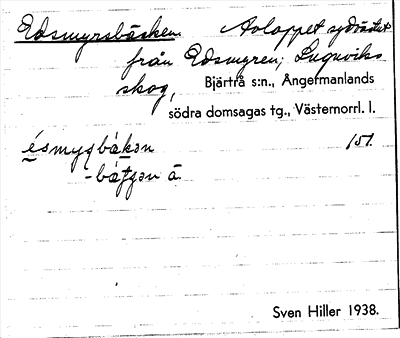 Edsmyrsbäcken Avloppet sydväst
från Edsmyren, Lugnviks
skog, Bjärtrå s:n., Ångermanlands
södra domsagas tg., Västernorrl. l.
ésmyṣbákən 151.
-bátʃən ā
Sven Hiller 1938.